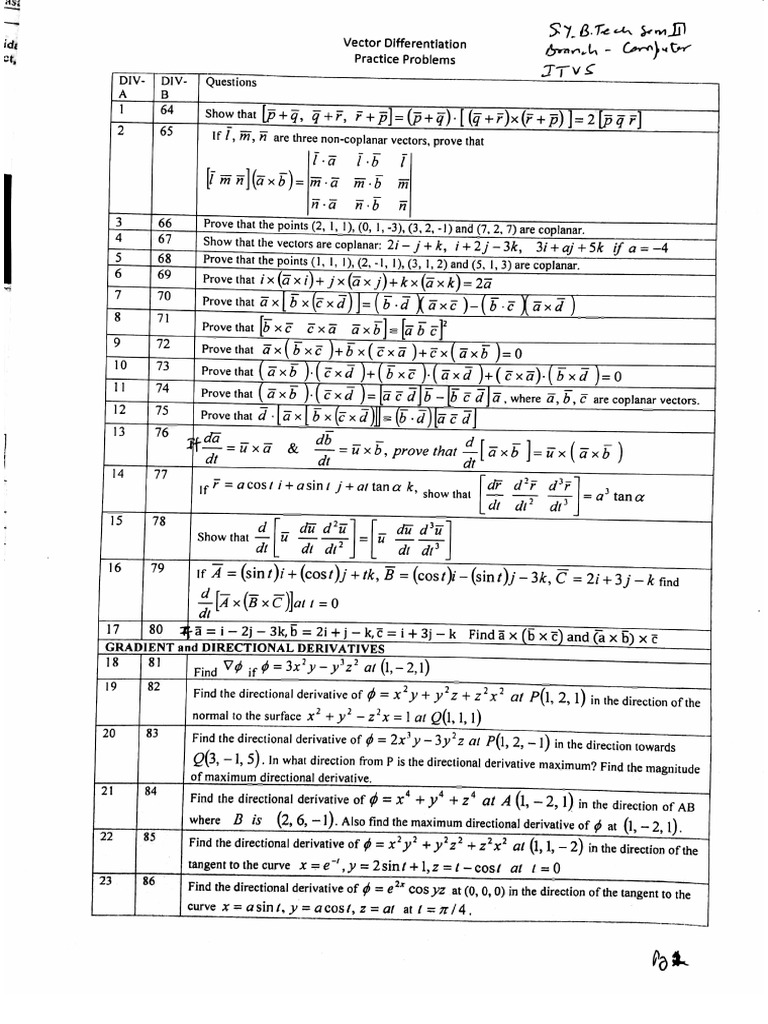 ast
ide
ct,
S.Y. B.Tech Sem III
Branch - Computer
ITVS
Vector Differentiation
Practice Problems
DIV-A DIV-B Questions
1 64 Show that [p̄ + q̄, q̄ + r̄, r̄ + p̄] = (p̄ + q̄) · [(q̄ + r̄) × (r̄ + p̄)] = 2 [p̄ q̄ r̄]
2 65 If l̄, m̄, n̄ are three non-coplanar vectors, prove that
[l̄ m̄ n̄](ā × b̄) = | l̄·ā l̄·b̄ l̄ |
| m̄·ā m̄·b̄ m̄ |
| n̄·ā n̄·b̄ n̄ |
3 66 Prove that the points (2, 1, 1), (0, 1, -3), (3, 2, -1) and (7, 2, 7) are coplanar.
4 67 Show that the vectors are coplanar: 2i − j + k, i + 2j − 3k, 3i + aj + 5k if a = −4
5 68 Prove that the points (1, 1, 1), (2, -1, 1), (3, 1, 2) and (5, 1, 3) are coplanar.
6 69 Prove that i × (ā × i) + j × (ā × j) + k × (ā × k) = 2ā
7 70 Prove that ā × [b̄ × (c̄ × d̄)] = (b̄ · d̄)(ā × c̄) − (b̄ · c̄)(ā × d̄)
8 71 Prove that [b̄ × c̄ c̄ × ā ā × b̄] = [ā b̄ c̄]²
9 72 Prove that ā × (b̄ × c̄) + b̄ × (c̄ × ā) + c̄ × (ā × b̄) = 0
10 73 Prove that (ā × b̄) · (c̄ × d̄) + (b̄ × c̄) · (ā × d̄) + (c̄ × ā) · (b̄ × d̄) = 0
11 74 Prove that (ā × b̄) · (c̄ × d̄) = [ā c̄ d̄]b̄ − [b̄ c̄ d̄]ā, where ā, b̄, c̄ are coplanar vectors.
12 75 Prove that d̄ · [ā × [b̄ × (c̄ × d̄)]] = (b̄ · d̄)[ā c̄ d̄]
13 76 If dā/dt = ū × ā & db̄/dt = ū × b̄, prove that d/dt [ā × b̄] = ū × (ā × b̄)
14 77 If r̄ = a cos t i + a sin t j + at tan α k, show that [dr̄/dt d²r̄/dt² d³r̄/dt³] = a³ tan α
15 78 Show that d/dt [ū dū/dt d²ū/dt²] = [ū dū/dt d³ū/dt³]
16 79 If Ā = (sin t)i + (cos t)j + tk, B̄ = (cos t)i − (sin t)j − 3k, C̄ = 2i + 3j − k find
d/dt [Ā × (B̄ × C̄)] at t = 0
17 80 If ā = i − 2j − 3k, b̄ = 2i + j − k, c̄ = i + 3j − k Find ā × (b̄ × c̄) and (ā × b̄) × c̄
GRADIENT and DIRECTIONAL DERIVATIVES
18 81 Find ∇ϕ if ϕ = 3x²y − y³z² at (1, −2, 1)
19 82 Find the directional derivative of ϕ = x²y + y²z + z²x² at P(1, 2, 1) in the direction of the
normal to the surface x² + y² − z²x = 1 at Q(1, 1, 1)
20 83 Find the directional derivative of ϕ = 2x³y − 3y²z at P(1, 2, −1) in the direction towards
Q(3, −1, 5). In what direction from P is the directional derivative maximum? Find the magnitude
of maximum directional derivative.
21 84 Find the directional derivative of ϕ = x⁴ + y⁴ + z⁴ at A (1, −2, 1) in the direction of AB
where B is (2, 6, −1). Also find the maximum directional derivative of ϕ at (1, −2, 1).
22 85 Find the directional derivative of ϕ = x²y² + y²z² + z²x² at (1, 1, −2) in the direction of the
tangent to the curve x = e⁻ᵗ, y = 2 sin t + 1, z = t − cos t at t = 0
23 86 Find the directional derivative of ϕ = e²ˣ cos yz at (0, 0, 0) in the direction of the tangent to the
curve x = a sin t, y = a cos t, z = at at t = π / 4.